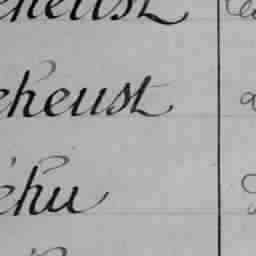 eheust
eheust
éhu